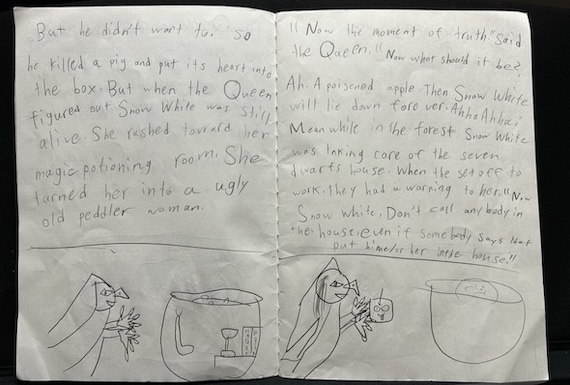 But he didn't want to. So
he killed a pig and put its heart into
the box. But when the Queen
figured out Snow White was still
alive. She rushed toward her
magic potioning room. She
turned her into a ugly
old peddler woman.
"Now the moment of truth" Said
the Queen. "Now what should it be?
Ah. A poisened apple. Then Snow White
will lie down forever. Ahha Ahha!
Meanwhile in the forest Snow White
was taking care of the seven
dwarfs house. When the set off to
work. they had a warning to her. "Now
Snow White. Don't call any body in
the house, even if some body says
put hime/or her in the house."